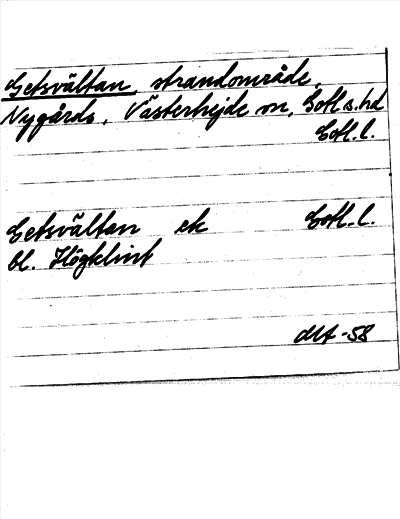 Getsvältan, strandområde,
Nygårds, Västerhejde sn, Gotl. s. hd
Gotl. l.
Getsvältan ek Gotl. l.
bl. Högklint
-58